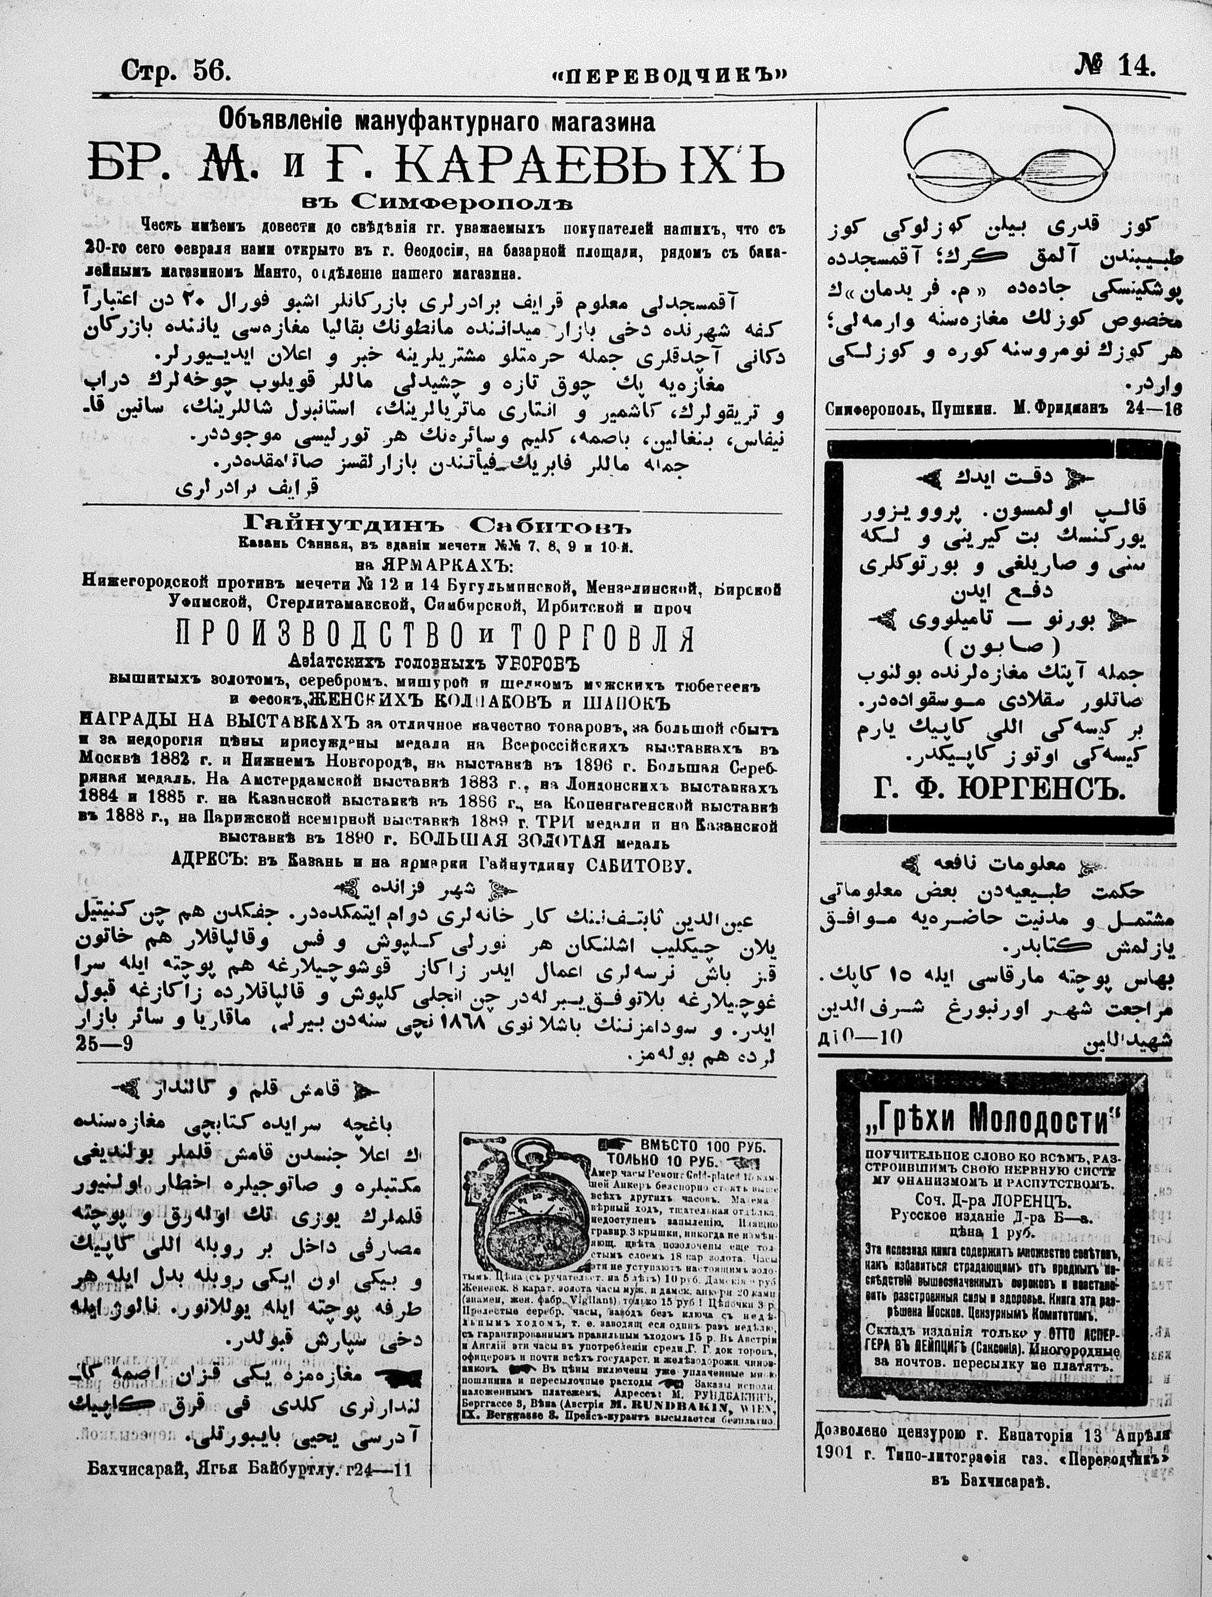 Стр. 56.
«ПЕРЕВОДЧИКЪ»
№ 14.
Объявленіе мануфактурнаго магазина
БР. М. и Г. КАРАЕВЫХЪ
въ Симферополѣ
Честь имѣемъ довести до свѣдѣнія гг. уважаемыхъ покупателей нашихъ, что съ
20-го сего февраля нами открыто въ г. Ѳеодосіи, на базарной площади, рядомъ съ бака-
лейнымъ магазиномъ Манто, отдѣленіе нашего магазина.
آقمسجدلی معلوم قرایف برادرلری بازرکانلر اشبو فورال ٢٠ دن اعتباراً
کفه شهرنده دخی بازار میداننده مانطونك بقالیا مغازه‌سی یاننده بازرکان
دکانی آچدقلری جمله حرمتلو مشتریلرینه خبر و اعلان ایدییورلر.
مغازه‌یه پك چوق تازه و چشیدلی ماللر قویلوب چوخه‌لرك دراپ
و تریقولرك، کاشمیر و انتاری ماتریالرینك، استانبول شاللرینك، ساتین قا-
نیفاس، بنغالین، باصمه، کلیم وسائره‌نك هر تورلیسی موجوددر.
جمله ماللر فابریك فیأتندن بازارلقسز صاتلمقده‌در.
قرایف برادرلری
Гайнутдинъ Сабитовъ
Казань Сѣнная, въ зданіи мечети №№ 7, 8, 9 и 10-й.
на ЯРМАРКАХЪ:
Нижегородской противъ мечети № 12 и 14 Бугульминской, Мензелинской, Бирской
Уфимской, Стерлитамакской, Симбирской, Ирбитской и проч
ПРОИЗВОДСТВО и ТОРГОВЛЯ
Азіатскихъ головныхъ УБОРОВЪ
вышитыхъ золотомъ, серебромъ, мишурой и шелкомъ мужскихъ тюбетеекъ
и фесокъ, ЖЕНСКИХЪ КОЛПАКОВЪ и ШАПОКЪ
НАГРАДЫ НА ВЫСТАВКАХЪ за отличное качество товаровъ, за большой сбытъ
и за недорогія цѣны присуждены медали на Всероссійскихъ выставкахъ въ
Москвѣ 1882 г. и Нижнемъ Новгородѣ, на выставкѣ въ 1896 г. Большая Сереб-
ряная медаль. На Амстердамской выставкѣ 1883 г., на Лондонскихъ выставкахъ
1884 и 1885 г. на Казанской выставкѣ въ 1886 г., на Копенгагенской выставкѣ
въ 1888 г., на Парижской всемірной выставкѣ 1889 г. ТРИ медали и на Казанской
выставкѣ въ 1890 г. БОЛЬШАЯ ЗОЛОТАЯ медаль
АДРЕСЪ: въ Казань и на ярмарки Гайнутдину САБИТОВУ.
شهر قزانده
عین‌الدین ثابتف‌ننك کار خانه‌لری دوام ایتمکده‌در. جفکدن هم چن کنیتیل
یلان چیکلیب اشلنکان هر نورلی کلپوش و فس وقالپاقلار هم خاتون
قز باش نرسه‌لری اعمال ایدر زاکاز قوشوچیلارغه هم پوچته ایله سرا
غوچیلارغه بلاتوفق یبرله‌در چن انجلی کلپوش و قالپاقلارده زاکازغه قبول
ایدر. و سودامزننك باشلانوی ١٨٦٨ نچی سنه‌دن بیرلی ماقاریا و سائر بازار
لرده هم بوله‌مز.
25—9
قامش قلم و کالنداز
باغچه سرایده کتابچی مغازه‌سنده
ك اعلا جنسدن قامش قلملر بولندیغی
مکتبلره و صاتوجیلره اخطار اولنیور
قلملرك یوزی تك اوله‌رق و پوچته
مصارفی داخل بر روبله اللی کاپیك
و بیکی اون ایکی روبله بدل ایله هر
طرفه پوچته ایله یوللانور. نالوژ ایله
دخی سپارش قبولدر.
مغازه‌مزه یکی قزان اصمه کا-
لندارلری کلدی فی قرق کاپیك
آدرسی یحیی بایبورتلی.
Бахчисарай, Ягъя Байбуртлу. г24—11
ВМѢСТО 100 РУБ.
ТОЛЬКО 10 РУБ.
Амер часы Ремонт Gold-plated 15 кам-
ней Анкеръ безспорно стоятъ выше
всѣхъ другихъ часовъ.
вѣрный ходъ, тщательная отдѣлка,
недоступенъ запыленію. Изящно
гравир. 3 крышки, никогда не измѣн-
яющ. цвѣта, позолочены еще тол-
стымъ слоемъ 18 кар золота. Часы
эти не уступаютъ настоящимъ золо-
тымъ. Цѣна (съ ручательст. на 5 лѣтъ) 10 руб.
Женевск. 8 карат. золота часы муж. и дамск. анкеръ 20 камн
(знамен. жен. фабр. Vigilant) только 15 руб! Цѣпочки 3 р.
Прелестые серебр. часы, заводъ безъ ключа съ недѣ-
льнымъ ходомъ, т. е. заводящ еся одинъ разъ недѣлю,
съ гарантированнымъ правильнымъ ходомъ 15 р. Въ Австріи
и Англіи эти часы въ употребленіи среди Г. Г док торовъ,
офицеровъ и почти всѣхъ государст. и желѣзодорожн. чинов-
никовъ. Въ цѣны включены уже уплаченные мною
пошлина и пересылочные расходы Заказы исполн.
наложеннымъ платежемъ. Адресъ: М. РУНДБАКИНЪ,
Берггассе 3, Вѣна (Австрія M. RUNDBAKIN, WIEN,
IX. Berggasse 3. Прейсъ-курантъ высылается безплатно.
کوز قدری بیلن کوزلوکی کوز
طبیبندن آلمق کرك؛ آقمسجدده
پوشکینسکی جاده‌ده «م. فریدمان» ك
مخصوص کوزلك مغازه‌سنه وارمه‌لی؛
هر کوزك نومروسنه کوره و کوزلکی
واردر.
Симферополь, Пушкин. М. Фридманъ 24—16
دقت ایدك
قالپ اولمسون. پروویزور
یورکنسك بت کیرینی و لکه
سنی و صاریلغی و بورتوکلری
دفع ایدن
بورنو — تامیلووی
(صابون)
جمله آپتك مغازه‌لرنده بولنوب
صاتلور سقلادی موسقواده‌در.
بر کیسه‌کی اللی کاپیك یارم
کیسه‌کی اوتوز کاپیکدر.
Г. Ф. ЮРГЕНСЪ.
معلومات نافعه
حکمت طبیعیه‌دن بعض معلوماتی
مشتمل و مدنیت حاضره‌یه موافق
یازلمش کتابدر.
بهاس پوچته مارقاسی ایله ١٥ کاپك.
مراجعت شهر اورنبورغ شرف‌الدین
شهیدالدین
10—10
„Грѣхи Молодости“
ПОУЧИТЕЛЬНОЕ СЛОВО КО ВСѢМЪ, РАЗ-
СТРОИВШИМЪ СВОЮ НЕРВНУЮ СИСТЕ
МУ ОНАНИЗМОМЪ И РАСПУТСТВОМЪ.
Соч. Д-ра ЛОРЕНЦЪ.
Русское изданіе Д-ра Б—а.
цѣна 1 руб.
Эта полезная книга содержитъ множество совѣтовъ,
какъ избавиться страдающимъ отъ вредныхъ по-
слѣдствій вышеозначенныхъ пороковъ и возстано-
вить разстроенныя силы и здоровье. Книга эта раз-
рѣшена Москов. Цензурнымъ Комитетомъ.
Складъ изданія только у ОТТО АСПЕР-
ГЕРА ВЪ ЛЕЙПЦИГѢ (Саксонія). Иногородные
за почтов. пересылку не платятъ.
Дозволено цензурою г. Евпаторія 13 Апрѣля
1901 г. Типо-литографія газ. «Переводчикъ»
въ Бахчисараѣ.